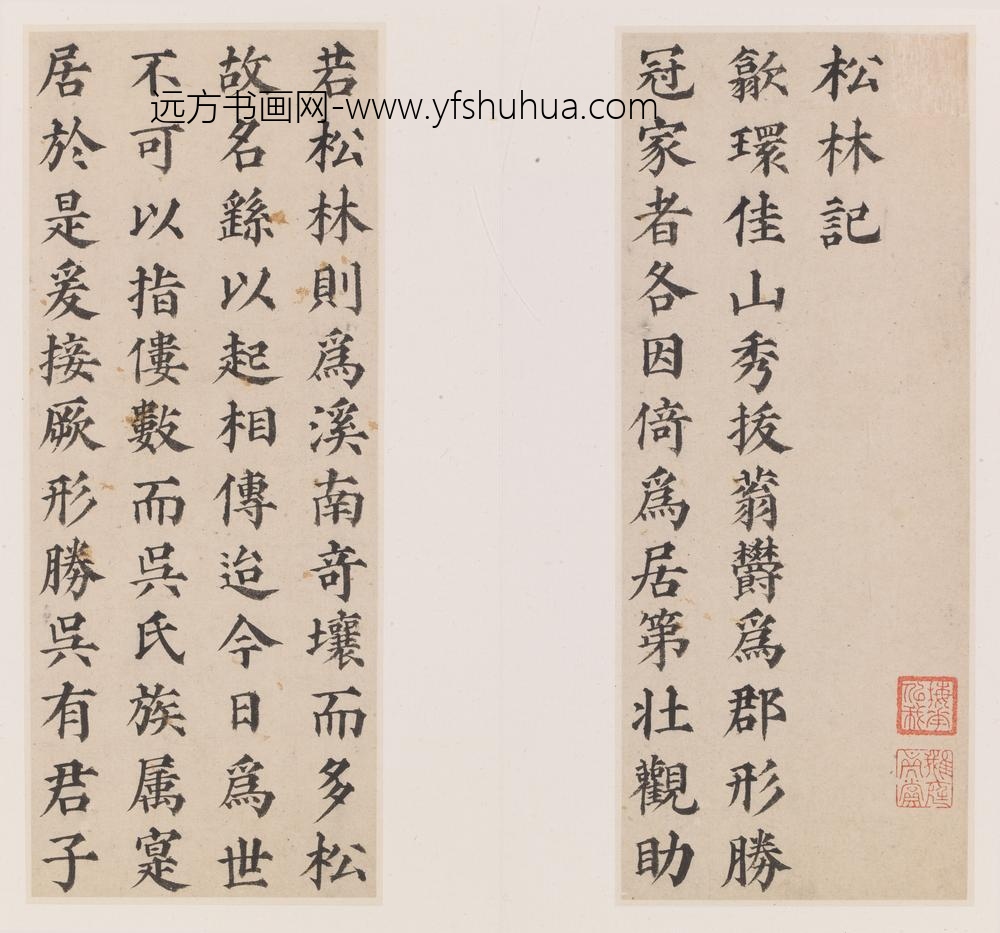 松林記
歙環佳山秀拔蓊鬱為郡形勝
冠家者各因倚為居第壯觀助
若松林則為溪南奇壤而多松
故名繇以起相傳迨今日為世
不可以指僂數而吳氏族属寔
居於是爰接厥形勝吳有君子
远方书画网-www.yfshuhua.com